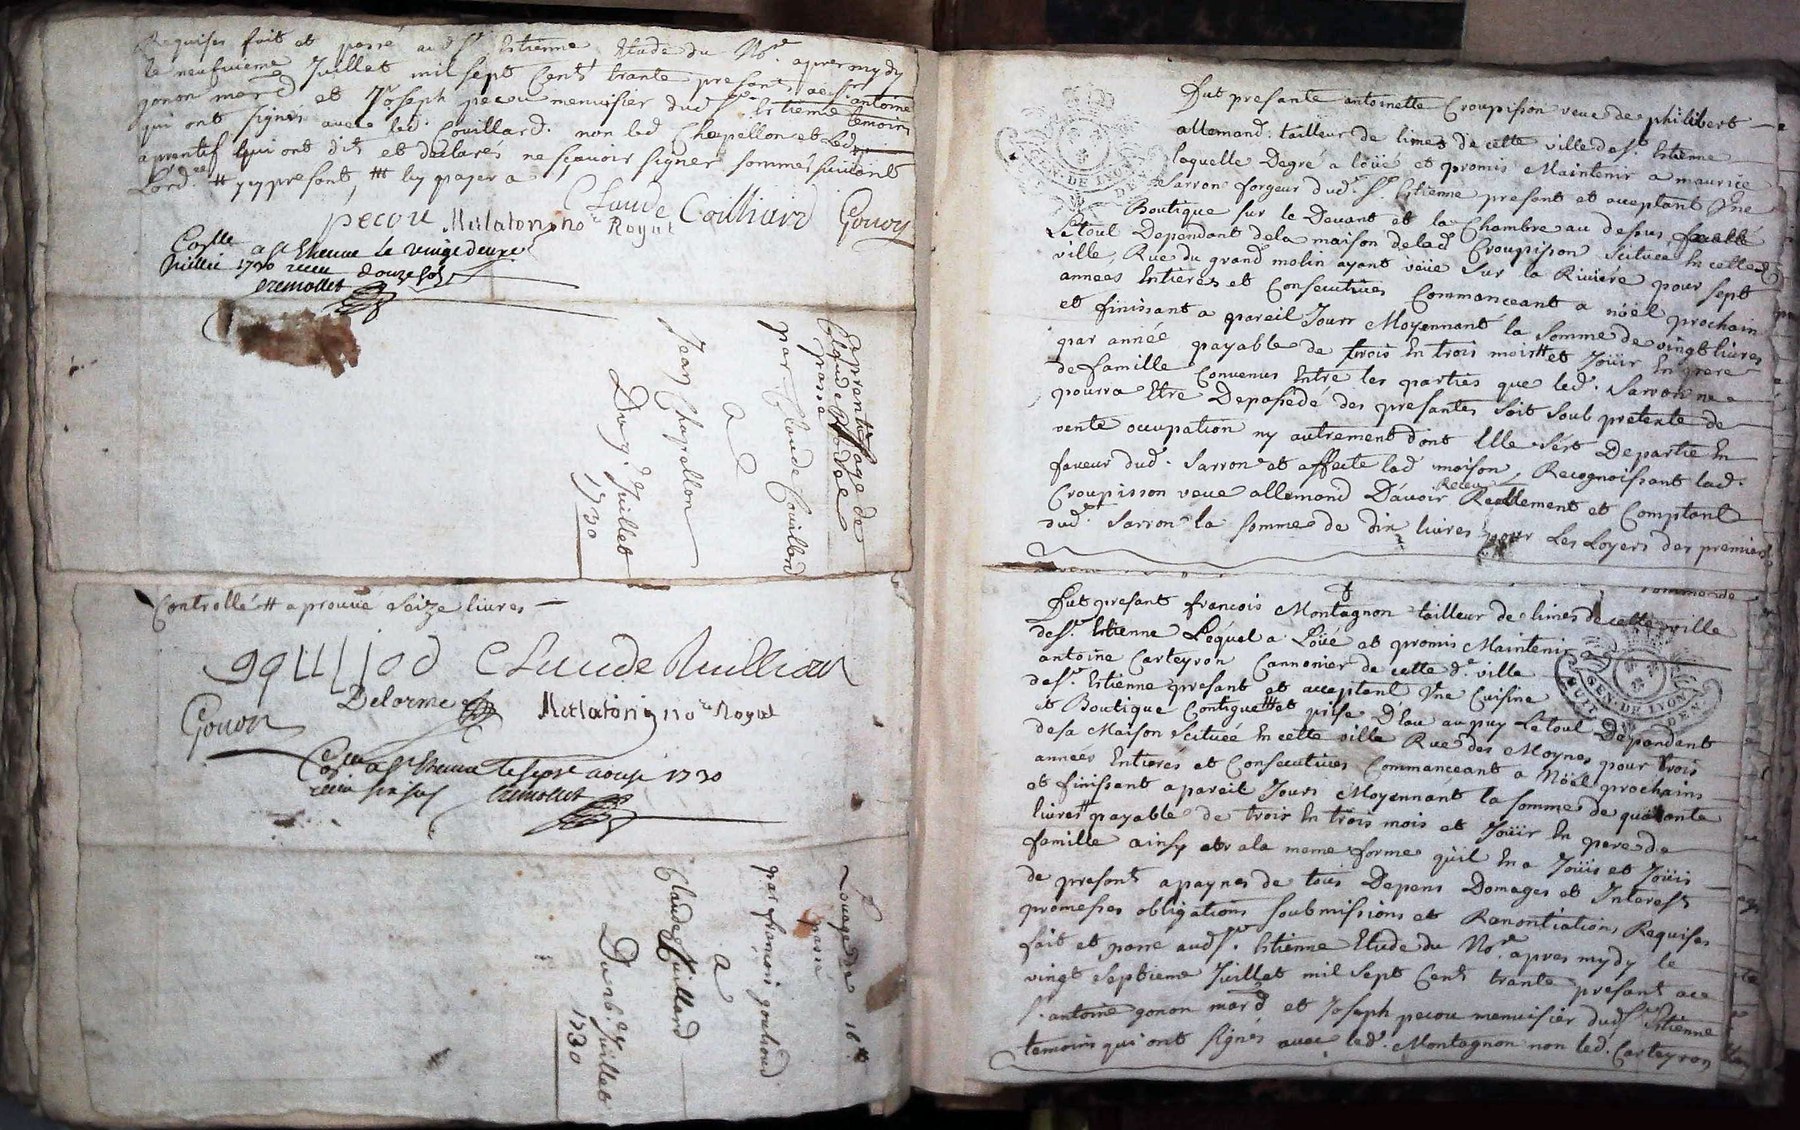 Requises fait et passé aud St. Estienne Etude du Nore. apres mydy
le neufvieme Juillet mil sept Cent trante presant ac sr. antoine
gonon marcd et Joseph pecou menuisier dud St. Estienne temoins
qui ont signés avec led. Couillard. non led Chapellon et Led
aprentif qui ont dit et declarés ne sçavoir signer sommes suivant
Lord. # y present, # luy payer a
pecou Matalon no.re Royal Claude Coulliard Gonon
Conlle a St Etienne le vingt deuxe
Juillet 1730 receu douze sols
Cremollet
Apprentissage de
Claude
passé
par Claude Couillard
a
Jean Chapellon
Du 9.e Juillet
1730
Controllé # aprouvé seize livres
Claude Cuilliard
Gonon Delorme Matalon no.re Royal
a St Etienne le sept aoust 1730
receu six sols Cremollet
Louage de 16#
passé
par francois gouthond
a
Claude Cuillard
Du 26.e Juillet
1730
Fut presante antoinette Croupisson veuve de philibert
allemand. tailleur de limes de cette ville de St. Estienne
laquelle Degré a loüé et promis Maintenir a maurice
Sarron forgeur dud. St. Estienne presant et acceptant Une
Boutique sur le Devant et la Chambre au desous
Le toul Dependant de la maison de lad Croupisson scituée En cette d
ville, Rue du grand molin ayant vëüe sur la Riviere pour sept
années Entieres et Consecutives Commanceant a nöël prochain
et finissant a pareil Jour Moyennant la somme de vingt livres
par année payable de trois En trois mois # et Joüir En pere
de famille Convenus Entre les parties que led. Sarron ne
pourra Etre Depossedé des presantes soit soub pretexte de
vente occupation ny autrement dont Elle sest Departie En
faveur dud. Sarron et affecte lad maison, Recognoissant lad.
Croupisson veuve allemand D'avoir Receu Reellement et Comptant
dud. Sarron la somme de dix livres pour Les Loyers des premiers
somme de
Fut presant françois Montagnon tailleur de limes de cette ville
de St. Estienne Lequel a Loüé et promis Maintenir a
antoine Carteyron Cannonier de cette d.e ville
de St. Estienne presant et acceptant Une Cuisine
et Boutique Contigue # et prise D'eau au puy Le toul Dependant
de sa Maison scituée En cette ville Rue des Moynes pour trois
années Entieres et Consecutives Commanceant a Nöël prochain
et finissant a pareil Jours Moyennant la somme de quarante
livres # payable de trois En trois mois et Joüir En pere de
famille ainsy et a la meme forme qu'il En a Joüis et Joüis
de presant a paynes de tous Depens Domages et Interest
promesses obligations soubmissions et Renontiations Requises
fait et passé aud St. Estienne Etude du No.re apres mydy le
vingt septieme Juillet mil sept Cent trante presant ac
sr. antoine gonon marcd et Joseph pecou menuisier dud St. Estienne
temoins qui ont signés avec led. Montagnon non led. Carteyron